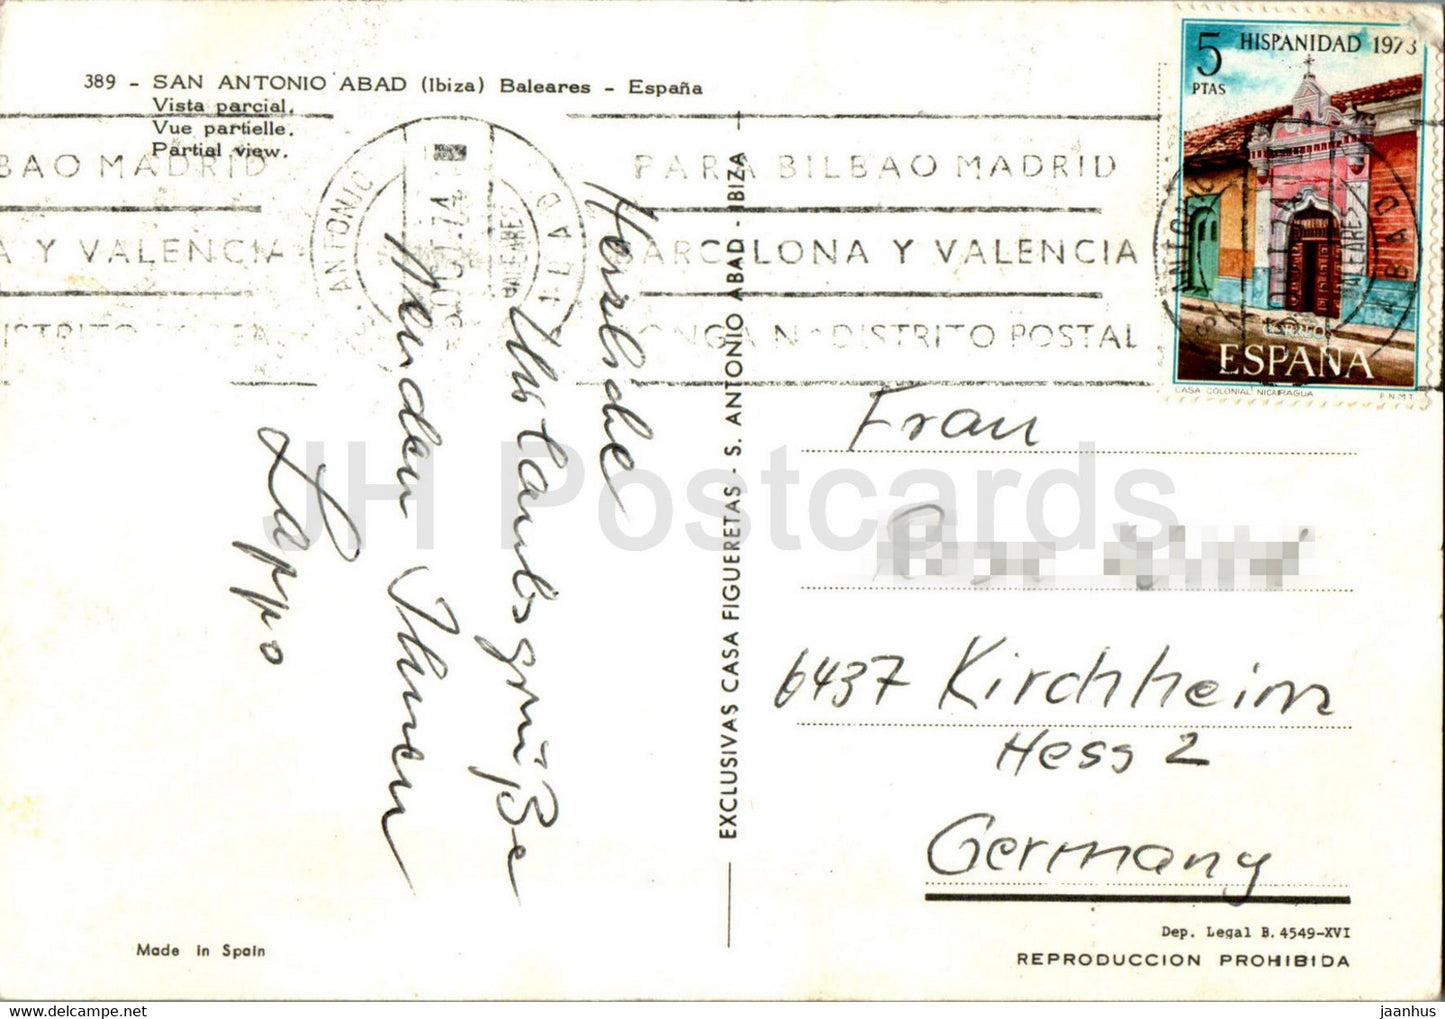 389 - SAN ANTONIO ABAD (Ibiza) Baleares - España
Vista parcial.
Vue partielle.
Partial view.
BAO MADRID
A Y VALENCIA
PARA BILBAO MADRID
BARCELONA Y VALENCIA
PONGA Nº DISTRITO POSTAL
5
PTAS
HISPANIDAD 1973
CORREO
ESPAÑA
CASA COLONIAL NICARAGUA
F N M T
Herzliche
Urlaubsgrüße
senden Ihnen
EXCLUSIVAS CASA FIGUERETAS - S. ANTONIO ABAD - IBIZA
Frau
6437 Kirchheim
Hess 2
Germany
Made in Spain
Dep. Legal B. 4549-XVI
REPRODUCCION PROHIBIDA
JH Postcards
jaanhus